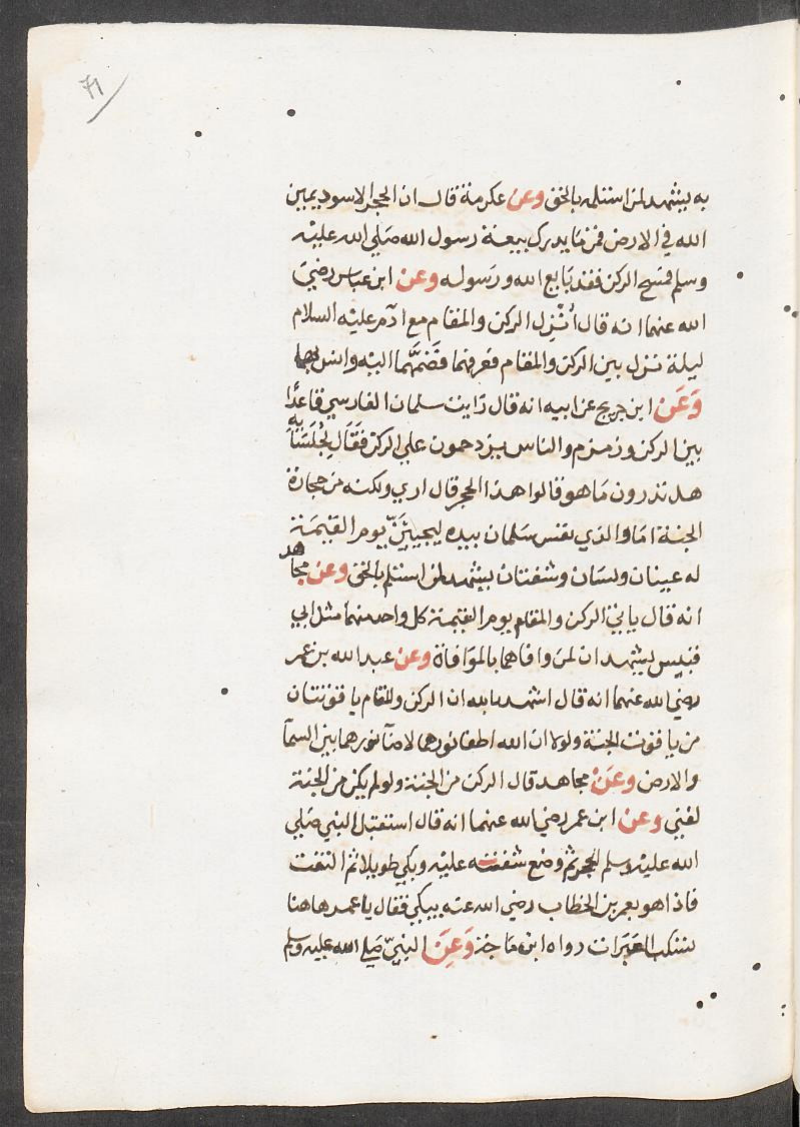 71
به يشهد لمن استلمه بالحق وعن عكرمة قال ان الحجر الاسود يمين
الله في الارض فمن ما يدرك بيعة رسول الله صَلي الله عليْه
وسلم فمسح الركن فقد بَايع الله ورَسوله وعن ابن عباس رضيَ
الله عنهما انه قال أُنْزِل الركن والمقام مع ادٓم عليْه السلام
ليلة نزل بين الركن والمقام فعرفهما فضَمَّهُما اليْه وانس بهما
وَعَن ابن جريج عن ابيه انه قال رَايت سلمان الفارسي قاعدًا
بين الركن وزمزم والناس يزدحمون علي الركن فقَال لجُلَسَائِهِ
هل تدرون مَا هو قالوا هذا الحجر قال اري ولكنه من حجارة
الجنة امَا والذي نفس سَلمان بيده ليجيئنّ يوم القيٰمَة
له عينان ولسَان وشفتان يشهد لمن استلم بالحق وعن مجاهد
انه قال ياتي الركن والمقام يوم القيٰمة كل واحد منهما مثل ابي
قبيس يشهدان لمن وافاهما بالموَافاة وعن عبد الله بن عمر
رضي الله عنهما انه قال اشهد بالله ان الركن والمقام ياقوتتان
من ياقوت الجنة ولولا ان الله اطفا نورهما لاضآ نورهما بين السمآ
والارض وعَنْ مجاهد قال الركن من الجنة ولو لم يكن من الجنة
لفني وعن ابن عمر رضي الله عنهما انه قال استقبل النبي صَلي
الله عليْه وسلم الحجر ثم وضع شفته عليْه وبكي طويلا ثم التفت
فاذا هو بعمر بن الخطاب رضي الله عنه يبكي فقال يا عمر هاهنا
تسكب العَبَرَات رواه ابن مَاجَة وَعَن النبيّ صَلي الله عليه وسلم